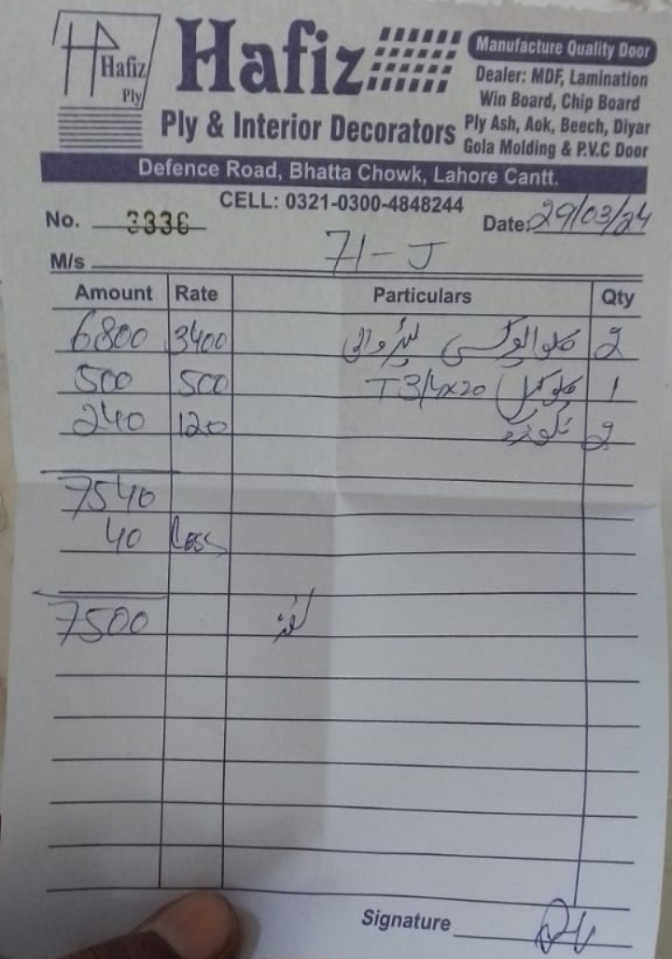 Hafiz
Ply
Hafiz
Ply & Interior Decorators
Manufacture Quality Door
Dealer: MDF, Lamination
Win Board, Chip Board
Ply Ash, Aok, Beech, Diyar
Gola Molding & P.V.C Door
Defence Road, Bhatta Chowk, Lahore Cantt.
CELL: 0321-0300-4848244
No. 3336 Date: 29/03/24
71-J
M/s
Amount Rate Particulars Qty
6800 3400 2
500 500 T 3/4x20 1
240 120 2
7540
40 Less
7500
Signature